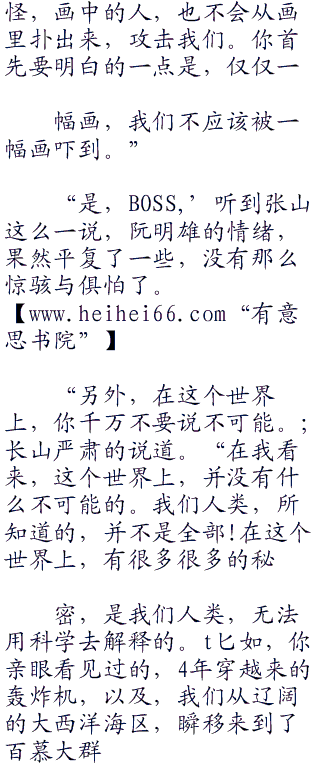 怪，画中的人，也不会从画
里扑出来，攻击我们。你首
先要明白的一点是，仅仅一
幅画，我们不应该被一
幅画吓到。”
“是，BOSS,’听到张山
这么一说，阮明雄的情绪，
果然平复了一些，没有那么
惊骇与俱怕了。
【www.heihei66.com“有意
思书院”】
“另外，在这个世界
上，你千万不要说不可能。；
长山严肃的说道。“在我看
来，这个世界上，并没有什
么不可能的。我们人类，所
知道的，并不是全部!在这个
世界上，有很多很多的秘
密，是我们人类，无法
用科学去解释的。t匕如，你
亲眼看见过的，4年穿越来的
轰炸机，以及，我们从辽阔
的大西洋海区，瞬移来到了
百慕大群